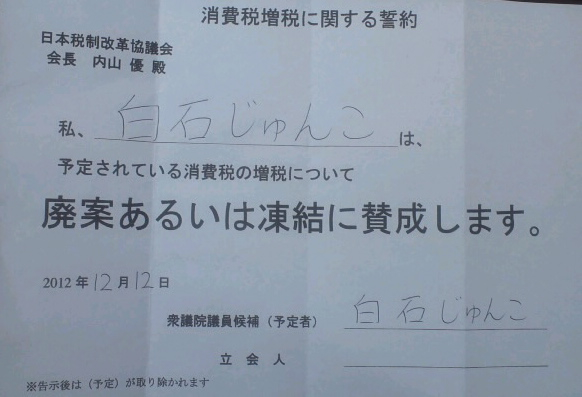 消費税増税に関する誓約
日本税制改革協議会
会長 内山 優 殿
私、白石じゅんこは、
予定されている消費税の増税について
廃案あるいは凍結に賛成します。
2012年12月12日
衆議院議員候補（予定者） 白石じゅんこ
立会人
※告示後は（予定）が取り除かれます